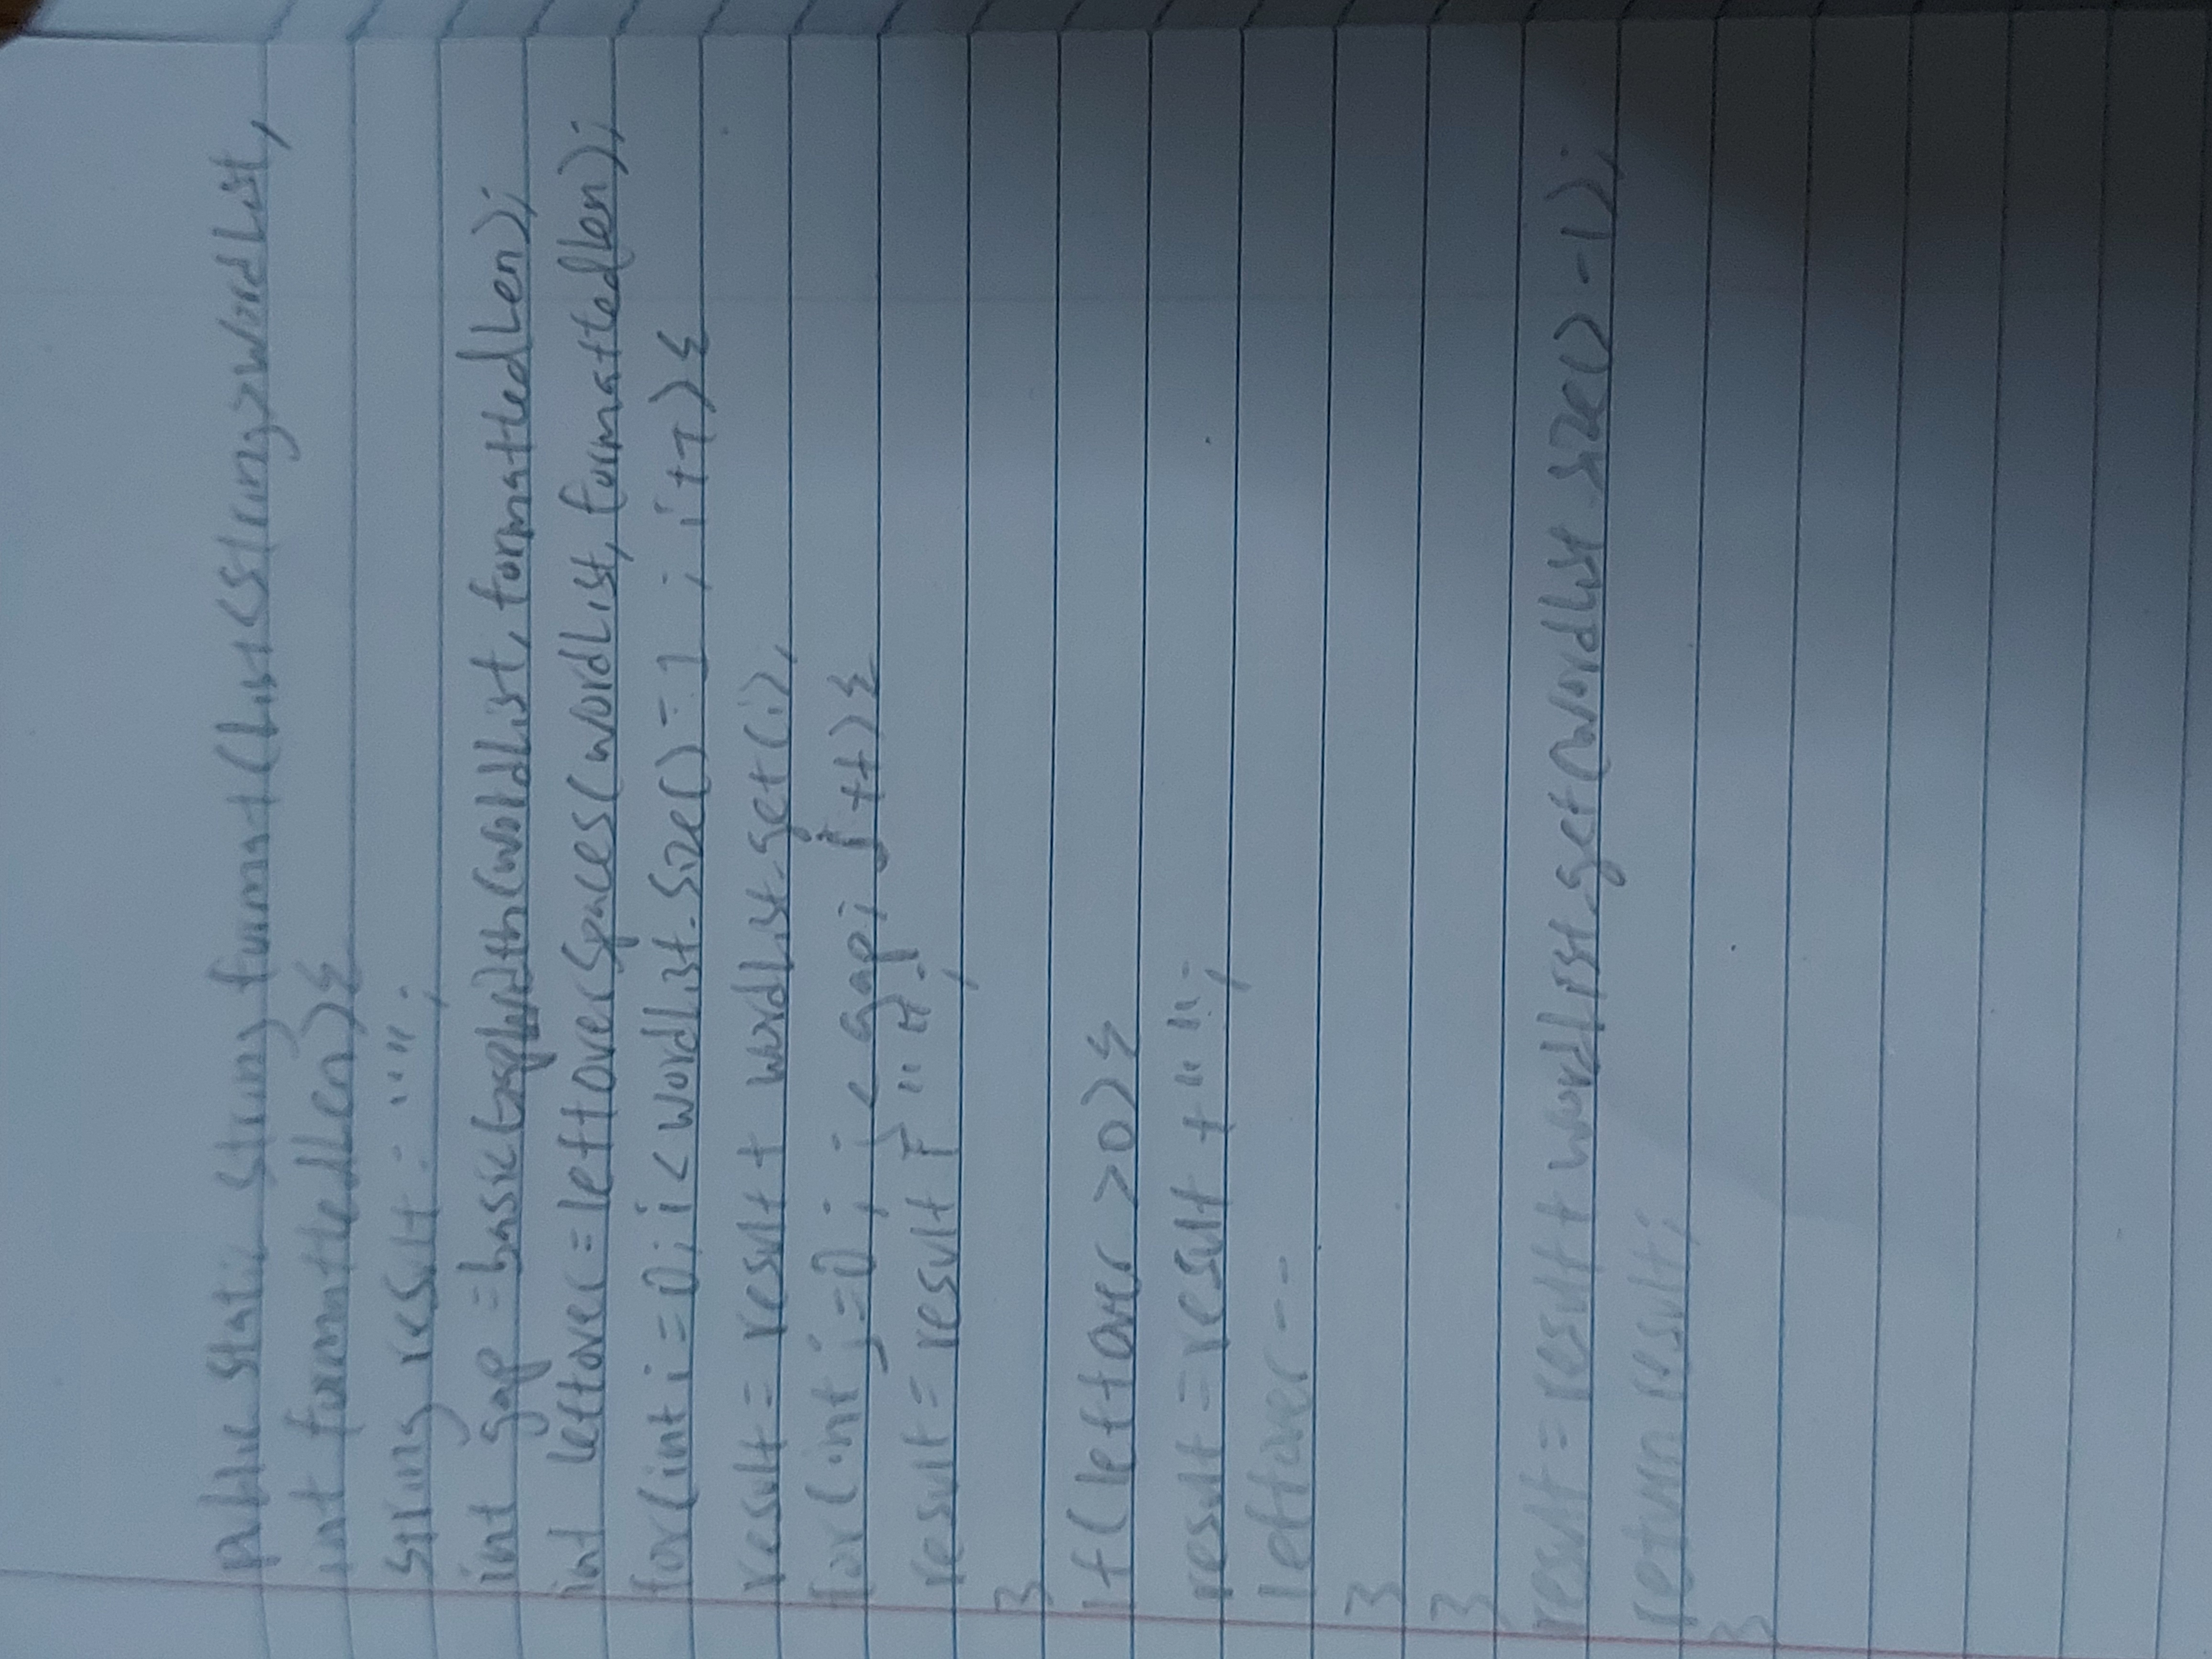 public static String format(List<String>wordList,
int formattedLen){
String result = "";
int gap =basicGapWidth(wordList, formattedLen);
int leftover=leftoverSpaces(wordList, formattedlen);
for(int i=0; i< wordList.size()-1 ; i++){
result= result+ wordList.get(i);
for(int j=0; j< gap; j++){
result= result + " ";
}
if(leftover >0){
result =result +" ";
leftover--
}
}
result=result+wordList.get(wordList.size()-1);
return result;
}